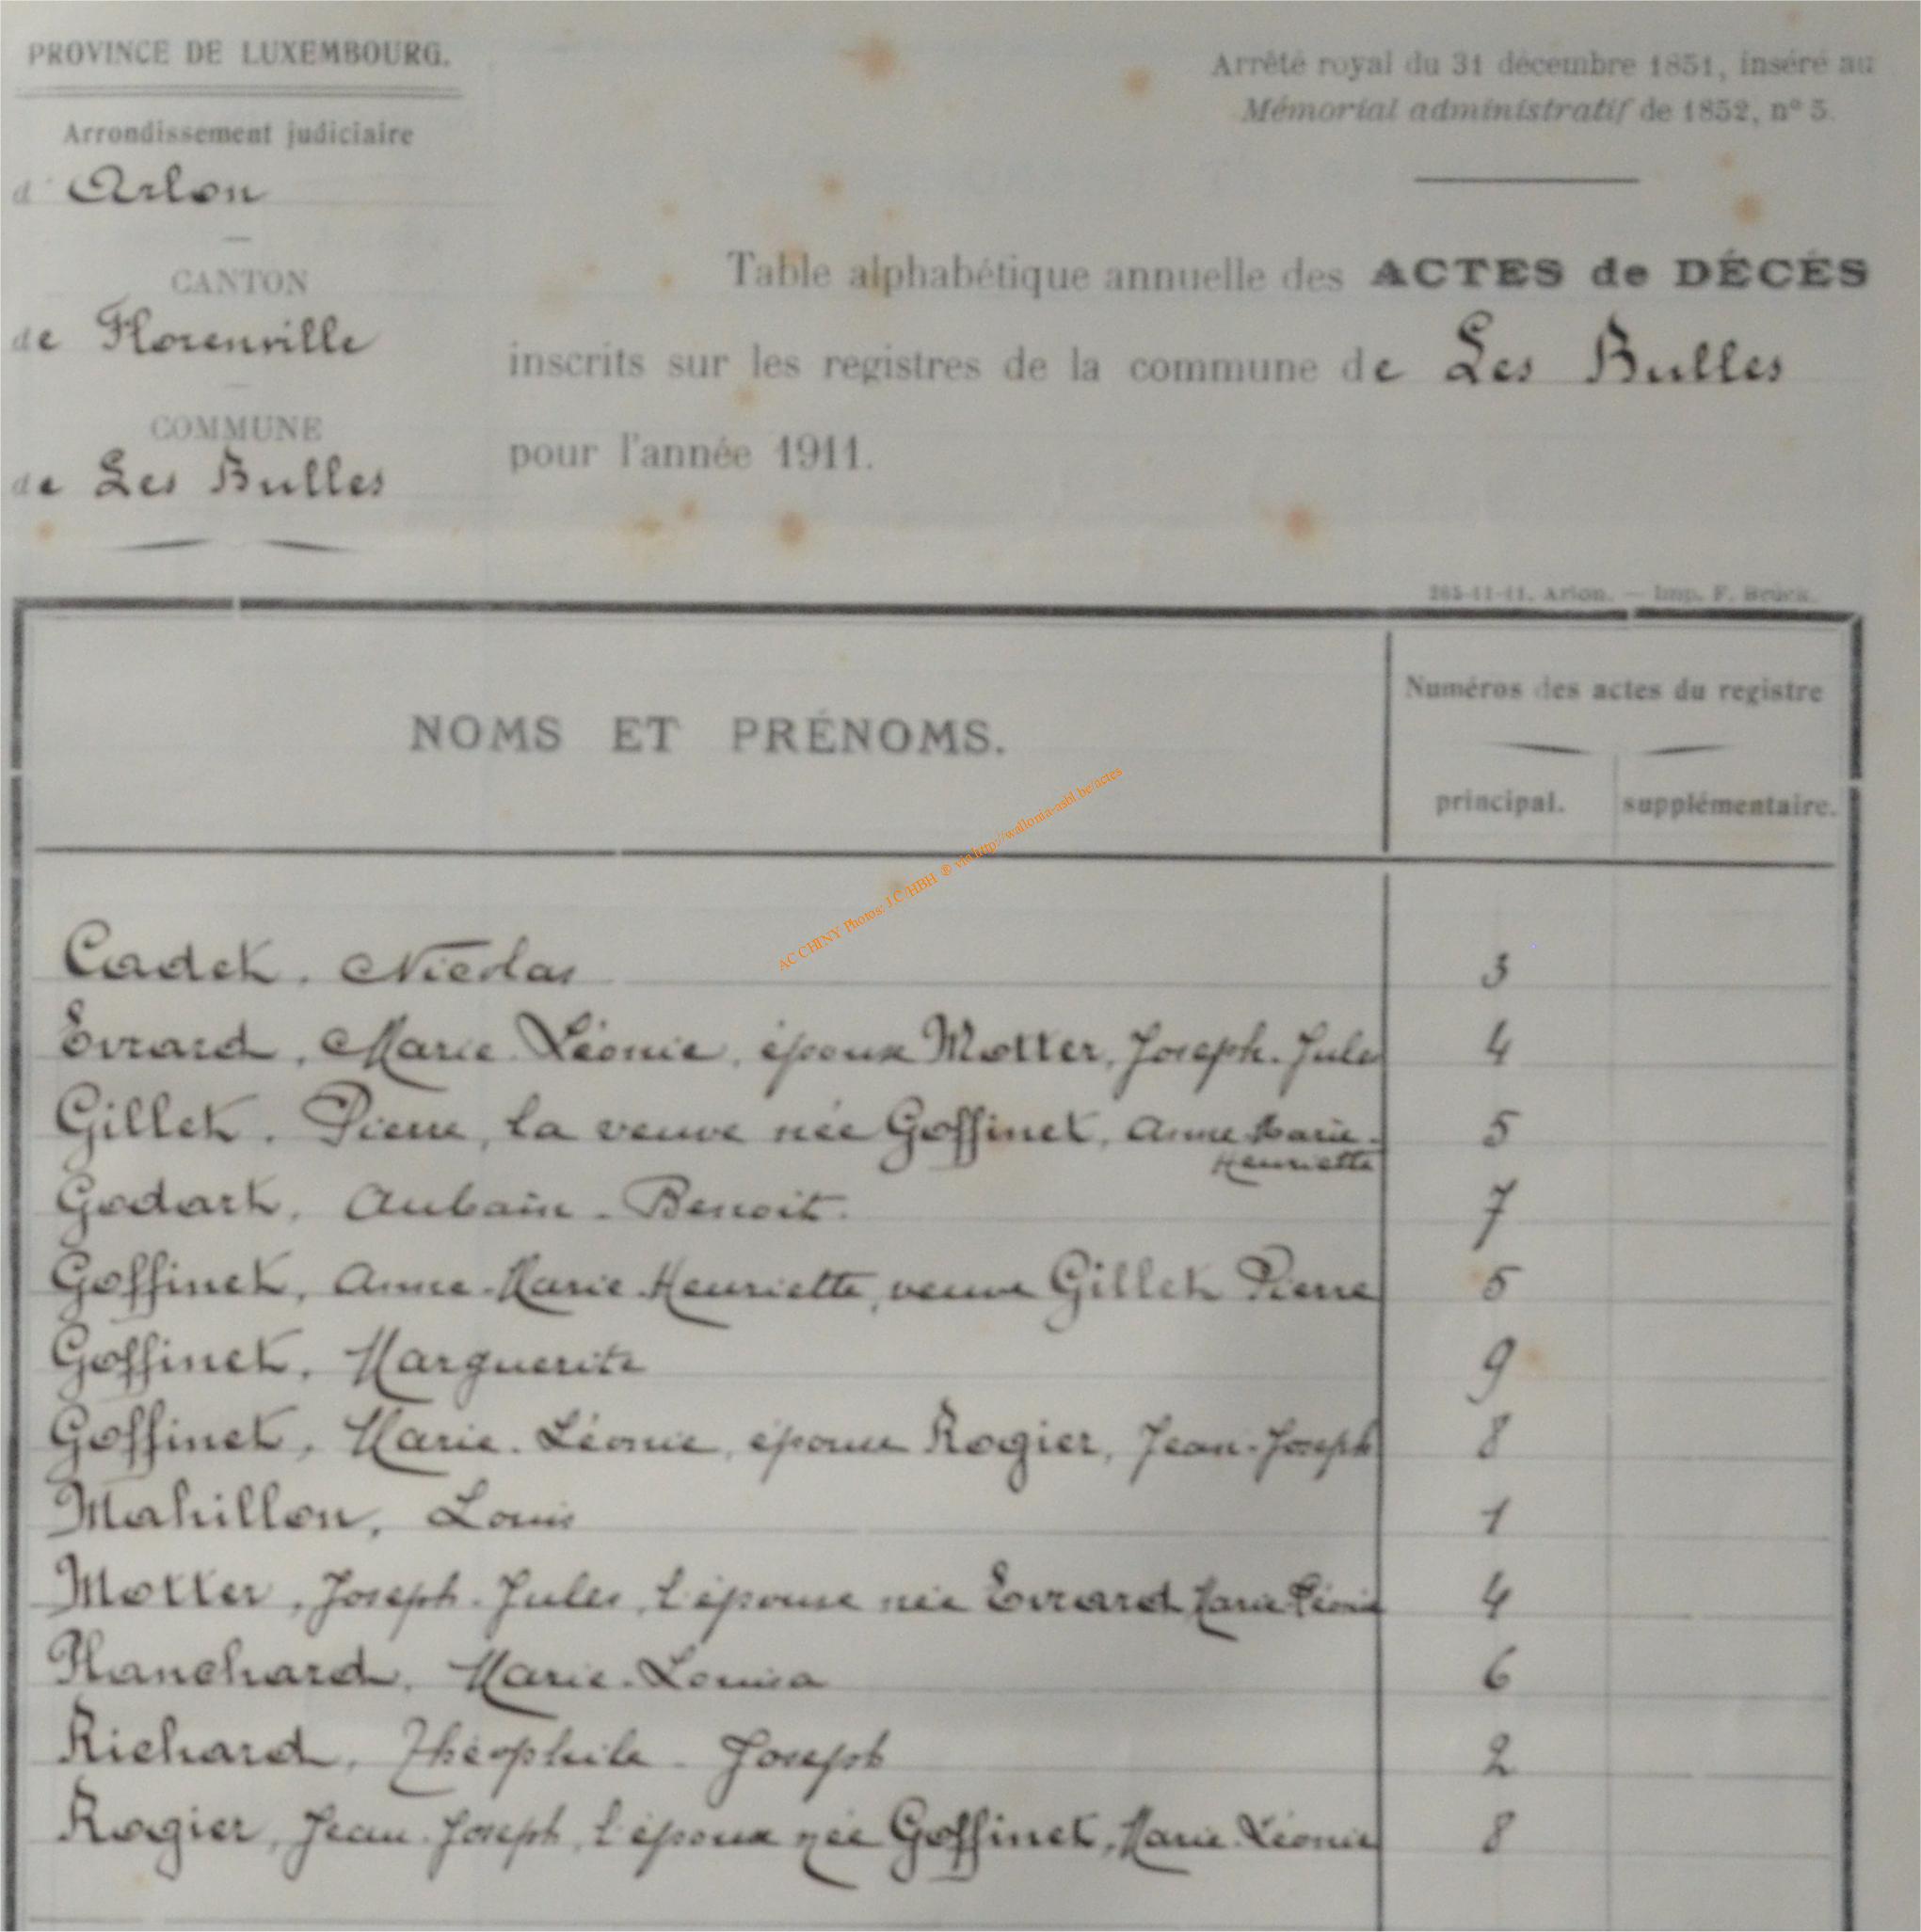 PROVINCE DE LUXEMBOURG.
Arrondissement judiciaire
d'Arlon
CANTON
de Florenville
COMMUNE
de Les Bulles
Arrêté royal du 31 décembre 1851, inséré au
Mémorial administratif de 1852, n° 5.
Table alphabétique annuelle des ACTES de DÉCÈS
inscrits sur les registres de la commune de Les Bulles
pour l'année 1911.
265-11-11. Arlon. — Imp. F. Brück.
NOMS ET PRÉNOMS.
Numéros des actes du registre
principal. supplémentaire.
AC CHINY Photos: J C HBH ® via http://wallonia-asbl.be/actes
Cadet, Nicolas 3
Evrard, Marie Léonie, épouse Motter, Joseph-Jules 4
Gillet, Pierre, la veuve née Goffinet, Anne Marie- 5
Henriette
Godart, Aubain-Benoit. 7
Goffinet, Anne-Marie-Henriette, veuve Gillet Pierre 5
Goffinet, Marguerite 9
Goffinet, Marie-Léonie, épouse Rogier, Jean-Joseph 8
Mahillon, Louis 1
Motter, Joseph-Jules, l'épouse née Evrard Marie Léonie 4
Planchard, Marie-Louisa 6
Richard, Théophile-Joseph 2
Rogier, Jean-Joseph, l'épouse née Goffinet, Marie-Léonie 8